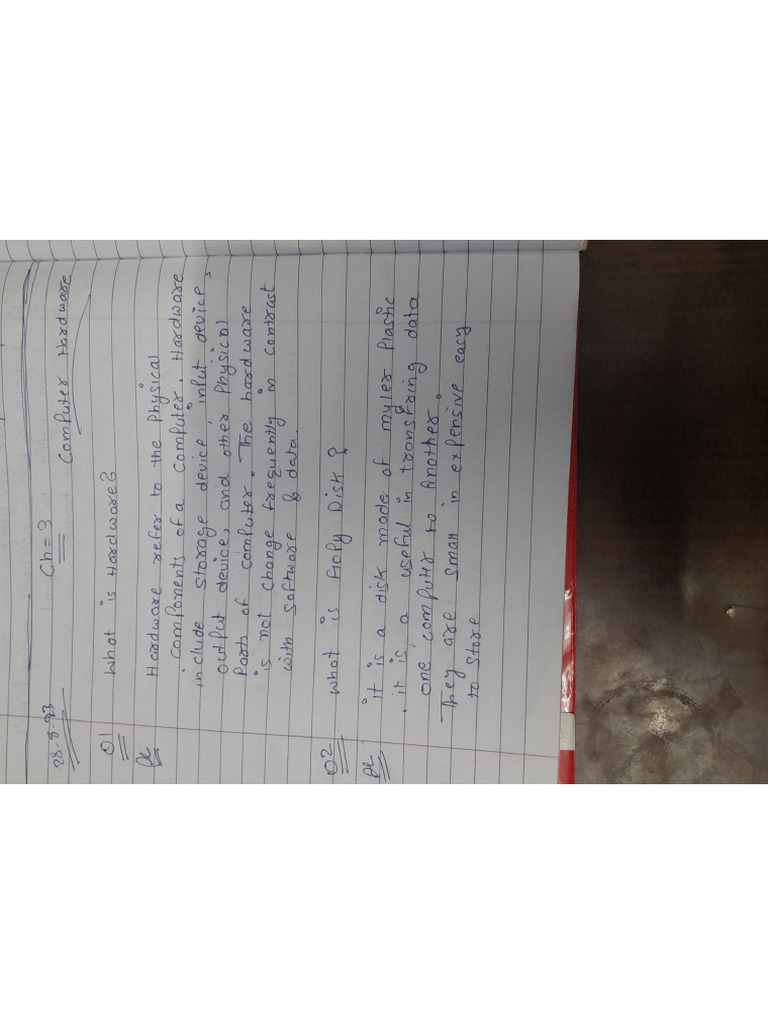 28-8-23 Ch=3
Computer Hardware
Q1 What is Hardware?
Hardware refer to the Physical
components of a computer. Hardware
include storage device, input device,
output device, and other Physical
Parts of computer. The hardware
is not change frequently in contrast
with software & data.
Q2 What is flopy Disk?
it is a disk made of myler Plastic
it is a useful in transfring data
one computer to Another.
They are small in expensive easy
to store